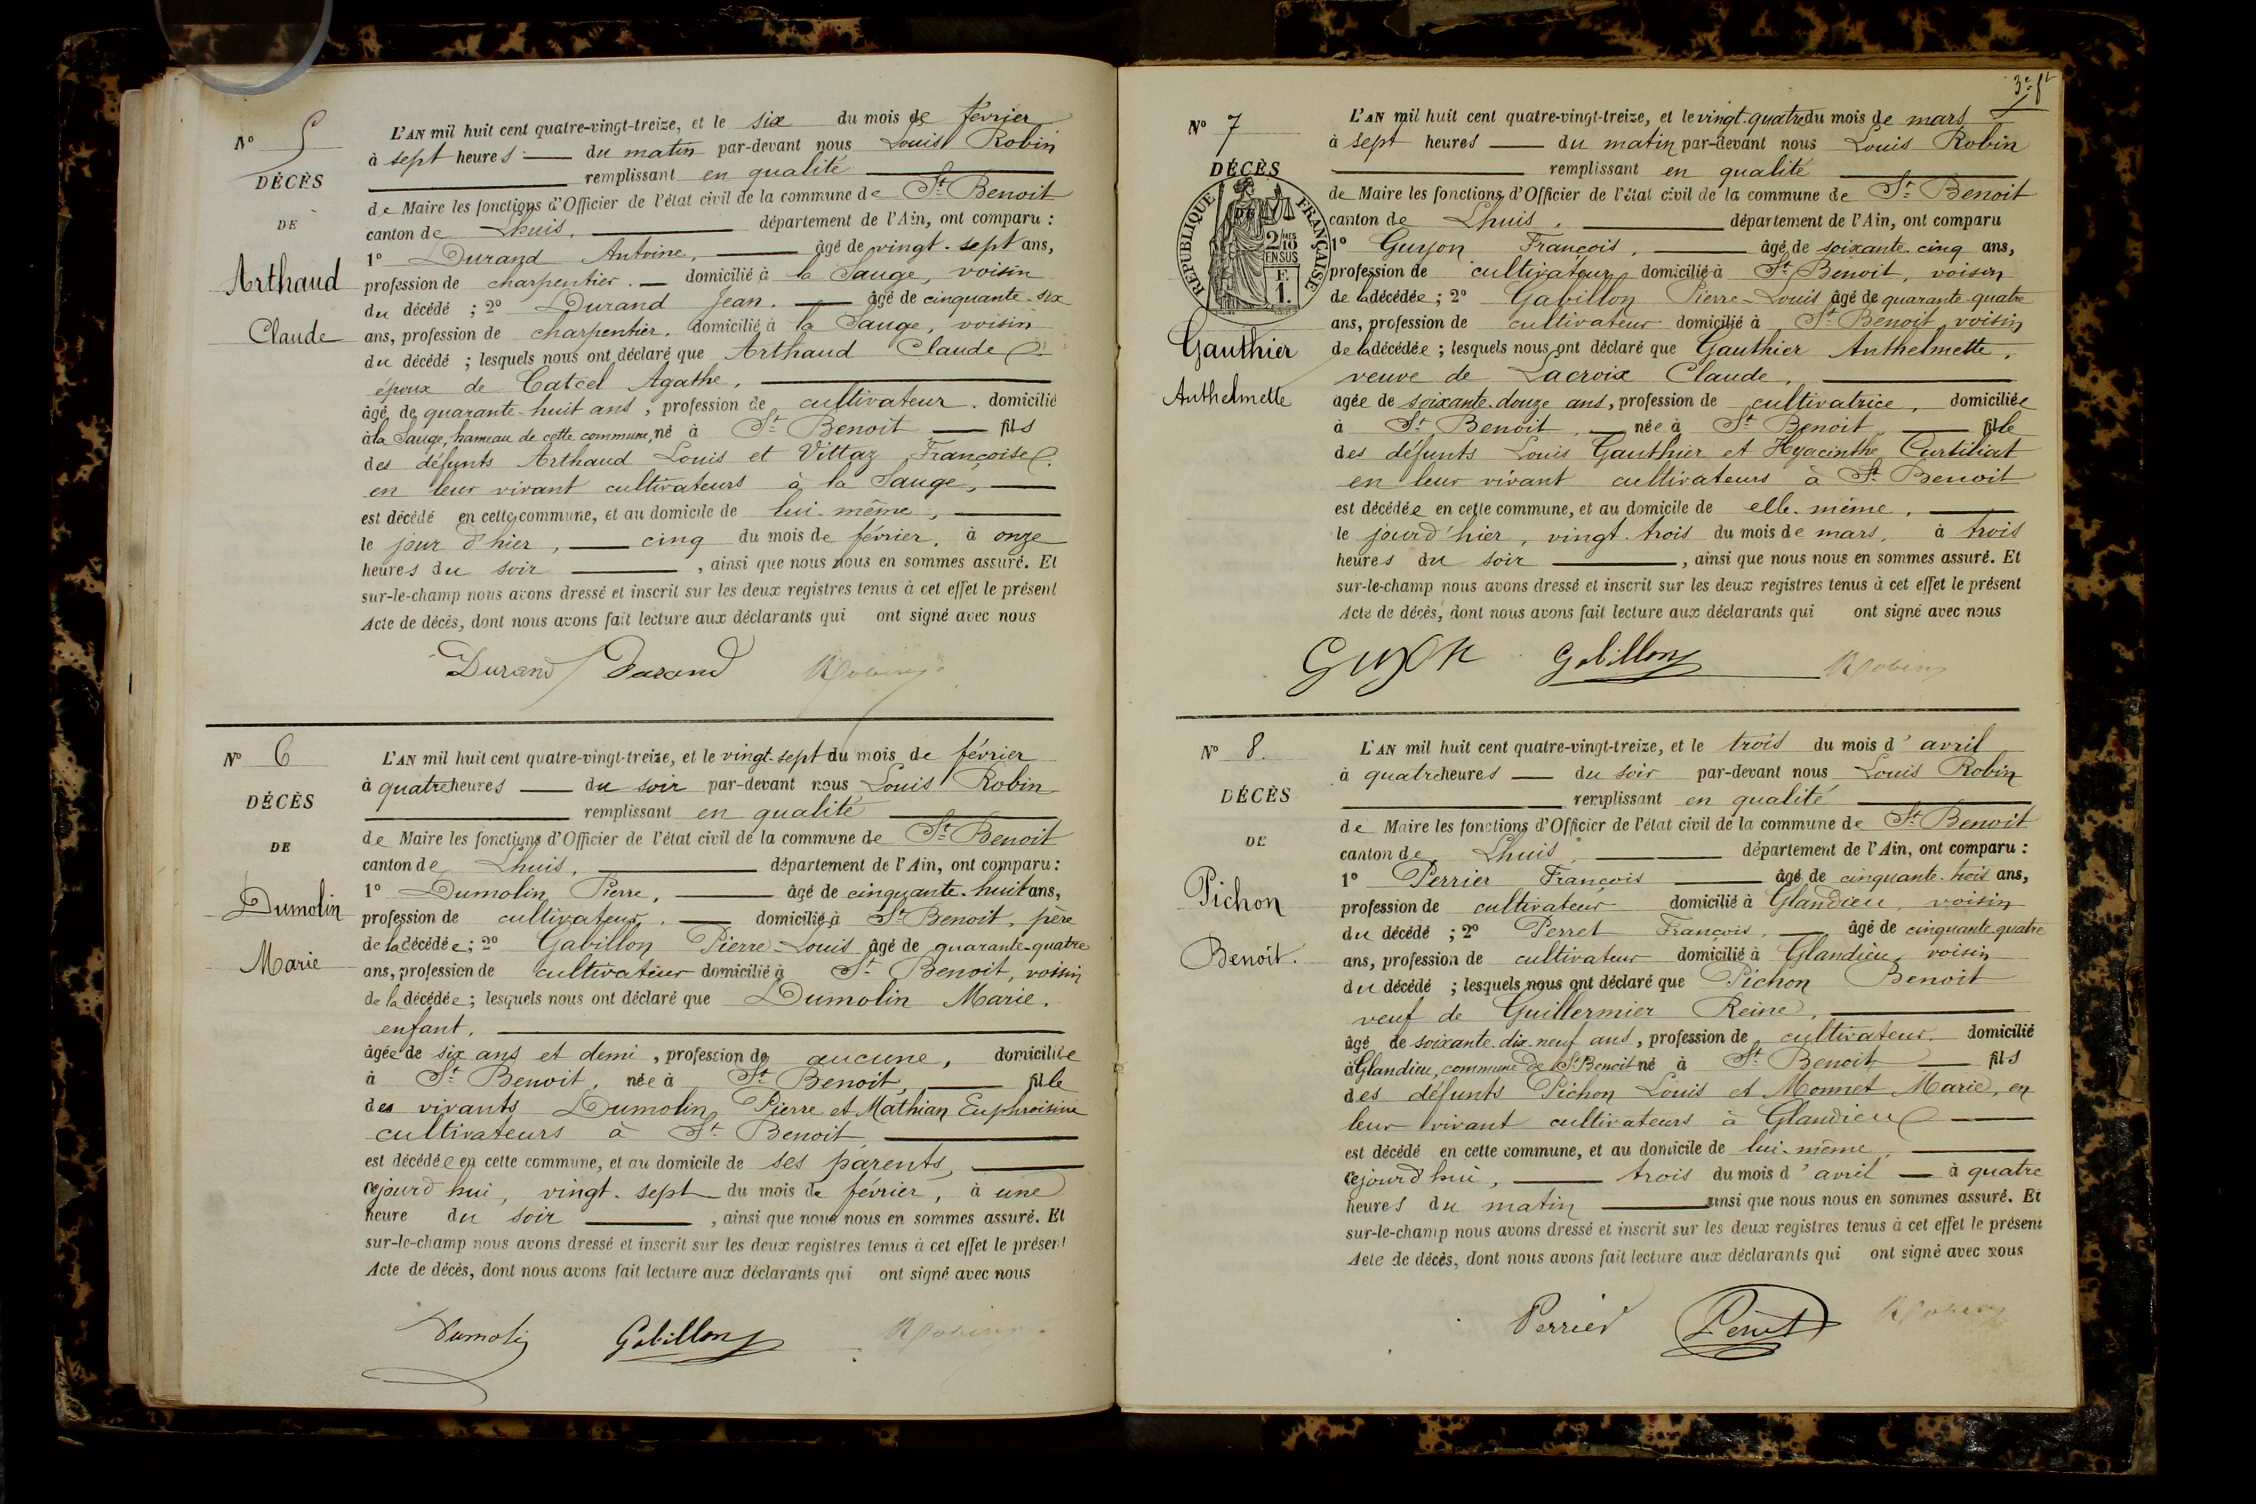 N° 5
DÉCÈS
DE
Arthaud
Claude
L'AN mil huit cent quatre-vingt-treize, et le six du mois de février
à sept heures du matin par-devant nous Louis Robin
remplissant en qualité
de Maire les fonctions d'Officier de l'état civil de la commune de St Benoit
canton de Lhuis, département de l'Ain, ont comparu :
1° Durand Antoine, âgé de vingt-sept ans,
profession de charpentier. domicilié à la Sauge, voisin
du décédé ; 2° Durand Jean. âgé de cinquante-six
ans, profession de charpentier. domicilié à la Sauge, voisin
du décédé ; lesquels nous ont déclaré que Arthaud Claude
époux de Catcel Agathe,
âgé de quarante-huit ans, profession de cultivateur. domicilié
à la Sauge, hameau de cette commune, né à St Benoit fils
des défunts Arthaud Louis et Vittaz Françoise
en leur vivant cultivateurs à la Sauge,
est décédé en cette commune, et au domicile de lui-même,
le jour d'hier, cinq du mois de février, à onze
heures du soir , ainsi que nous nous en sommes assuré. Et
sur-le-champ nous avons dressé et inscrit sur les deux registres tenus à cet effet le présent
Acte de décès, dont nous avons fait lecture aux déclarants qui ont signé avec nous
Durand Durand Robin
N° 6
DÉCÈS
DE
Dumolin
Marie
L'AN mil huit cent quatre-vingt-treize, et le vingt-sept du mois de février
à quatre heures du soir par-devant nous Louis Robin
remplissant en qualité
de Maire les fonctions d'Officier de l'état civil de la commune de St Benoit
canton de Lhuis, département de l'Ain, ont comparu :
1° Dumolin Pierre, âgé de cinquante-huit ans,
profession de cultivateur. domicilié à St Benoit, père
de la décédée ; 2° Gabillon Pierre-Louis âgé de quarante-quatre
ans, profession de cultivateur domicilié à St Benoit, voisin
de la décédée ; lesquels nous ont déclaré que Dumolin Marie.
enfant,
âgée de six ans et demi, profession de aucune, domiciliée
à St Benoit, née à St Benoit, fille
des vivants Dumolin Pierre et Mathian Euphroisine
cultivateurs à St Benoit
est décédée en cette commune, et au domicile de ses parents,
cejourd'hui, vingt-sept du mois de février, à une
heure du soir , ainsi que nous nous en sommes assuré. Et
sur-le-champ nous avons dressé et inscrit sur les deux registres tenus à cet effet le présent
Acte de décès, dont nous avons fait lecture aux déclarants qui ont signé avec nous
Dumolin Gabillon Robin
3e ft
N° 7
DÉCÈS
DE
RÉPUBLIQUE FRANÇAISE
2/10 EN SUS
F. 1.
Gauthier
Anthelmette
L'AN mil huit cent quatre-vingt-treize, et le vingt-quatre du mois de mars
à sept heures du matin par-devant nous Louis Robin
remplissant en qualité
de Maire les fonctions d'Officier de l'état civil de la commune de St Benoit
canton de Lhuis, département de l'Ain, ont comparu
1° Guyon François, âgé de soixante-cinq ans,
profession de cultivateur, domicilié à St Benoit, voisin
de la décédée ; 2° Gabillon Pierre-Louis âgé de quarante-quatre
ans, profession de cultivateur domicilié à St Benoit, voisin
de la décédée ; lesquels nous ont déclaré que Gauthier Anthelmette,
veuve de Lacroix Claude,
agée de soixante-douze ans, profession de cultivatrice, domiciliée
à St Benoit, née à St Benoit, fille
des défunts Louis Gauthier et Hyacinthe Curtiliat
en leur vivant cultivateurs à St Benoit
est décédée en cette commune, et au domicile de elle-même,
le jourd'hier, vingt-trois du mois de mars, à trois
heures du soir , ainsi que nous nous en sommes assuré. Et
sur-le-champ nous avons dressé et inscrit sur les deux registres tenus à cet effet le présent
Acte de décès, dont nous avons fait lecture aux déclarants qui ont signé avec nous
Guyon Gabillon Robin
N° 8.
DÉCÈS
DE
Pichon
Benoit.
L'AN mil huit cent quatre-vingt-treize, et le trois du mois d'avril
à quatre heures du soir par-devant nous Louis Robin
remplissant en qualité
de Maire les fonctions d'Officier de l'état civil de la commune de St Benoit
canton de Lhuis, département de l'Ain, ont comparu :
1° Perrier François âgé de cinquante-trois ans,
profession de cultivateur domicilié à Glandieu, voisin
du décédé ; 2° Perret François, âgé de cinquante quatre
ans, profession de cultivateur domicilié à Glandieu, voisin
du décédé ; lesquels nous ont déclaré que Pichon Benoit
veuf de Guillermier Reine,
âgé de soixante-dix-neuf ans, profession de cultivateur. domicilié
à Glandieu, commune de St Benoit né à St Benoit fils
des défunts Pichon Louis et Monnet Marie, en
leur vivant cultivateurs à Glandieu
est décédé en cette commune, et au domicile de lui-même,
cejourd'hui, trois du mois d'avril à quatre
heures du matin ainsi que nous nous en sommes assuré. Et
sur-le-champ nous avons dressé et inscrit sur les deux registres tenus à cet effet le présent
Acte de décès, dont nous avons fait lecture aux déclarants qui ont signé avec nous
Perrier Perret Robin